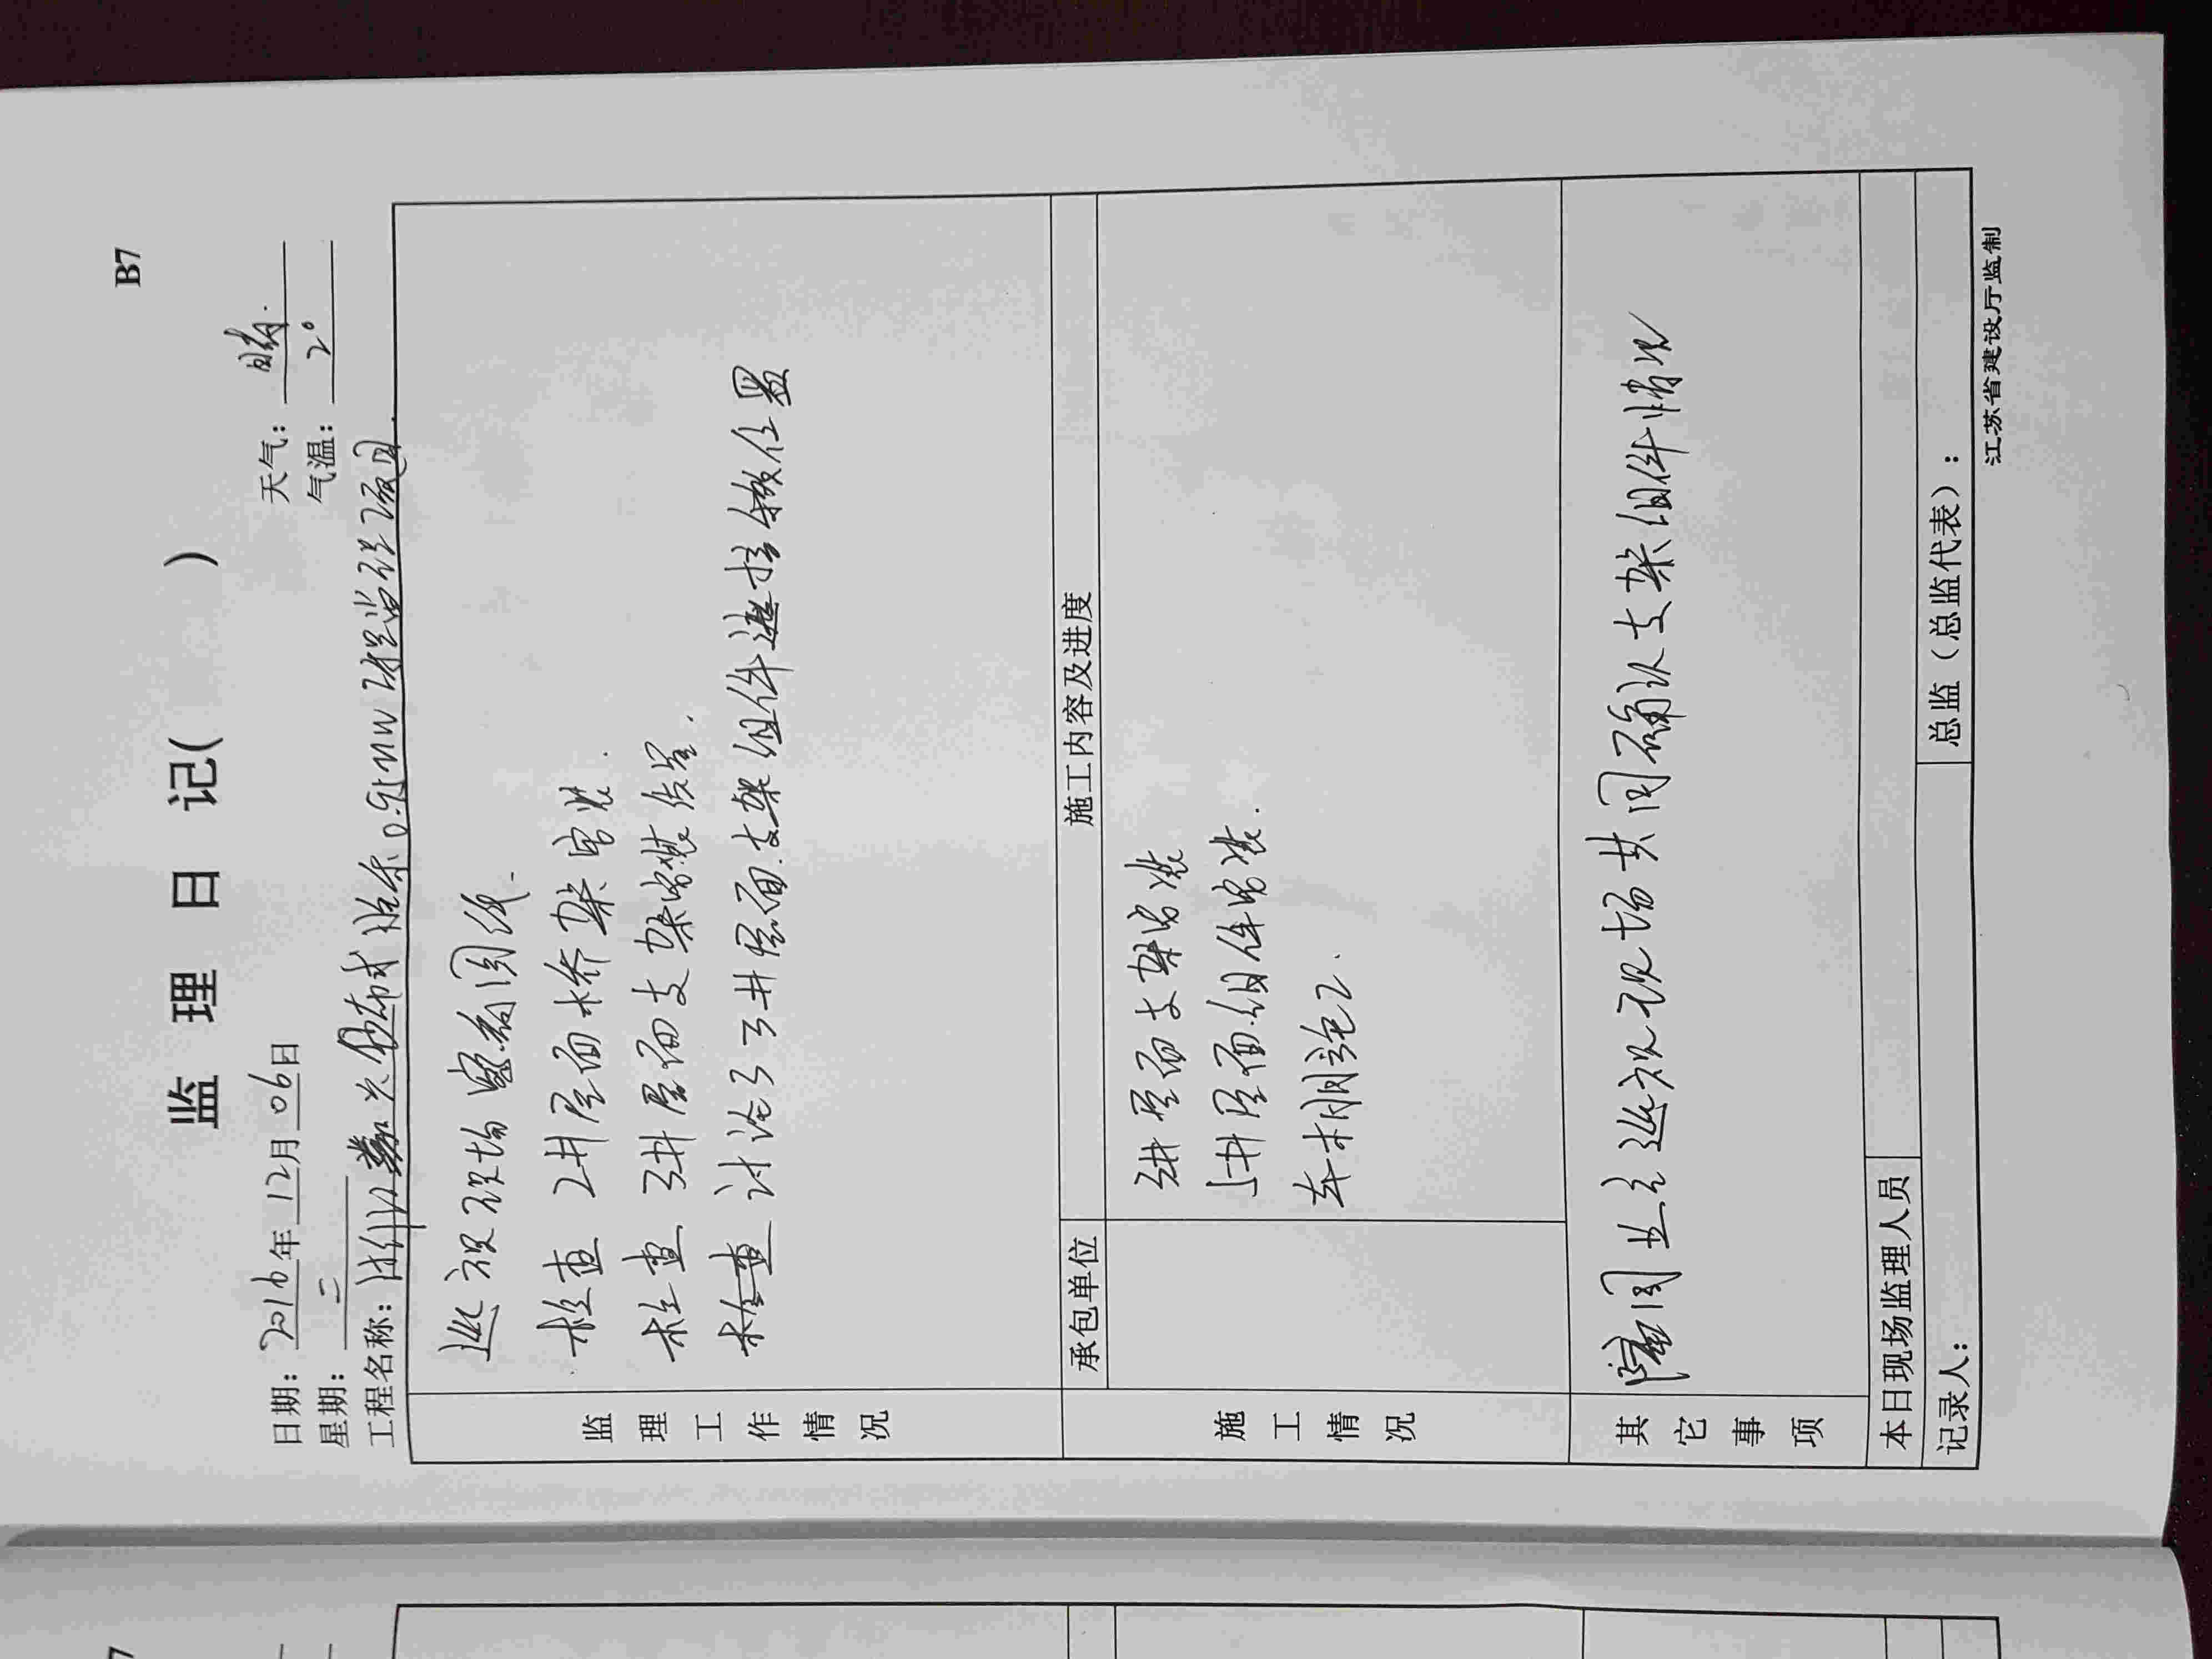 B7
监 理 日 记( )
日期: 2016年12月06日 天气: 晴.
星期: 二 气温: 2°
工程名称: 0.95MW 工程监理项目.
监理工作情况
巡视现场 查看图纸.
检查 2#屋面桥架安装.
检查 3#屋面支架安装位置.
检查 讨论了3#屋面支架组件遮挡 位置
承包单位 施工内容及进度
施工情况
3#屋面支架安装
5#屋面组件安装.
车棚施工.
其它事项
陪同业主巡视现场共同确认支架组件情况
本日现场监理人员
记录人: 总监（总监代表）:
江苏省建设厅监制
7